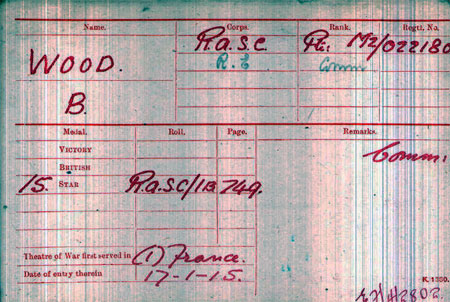 Name. Corps. Rank. Regtl. No.
WOOD. R.A.S.C Pte: M2/022180
R.E Comm
B.
Medal. Roll. Page. Remarks.
VICTORY Comm:
BRITISH
15. STAR R.A.S.C/1B 749.
Theatre of War first served in (1) France.
Date of entry therein 17-1-15.
K. 1380.